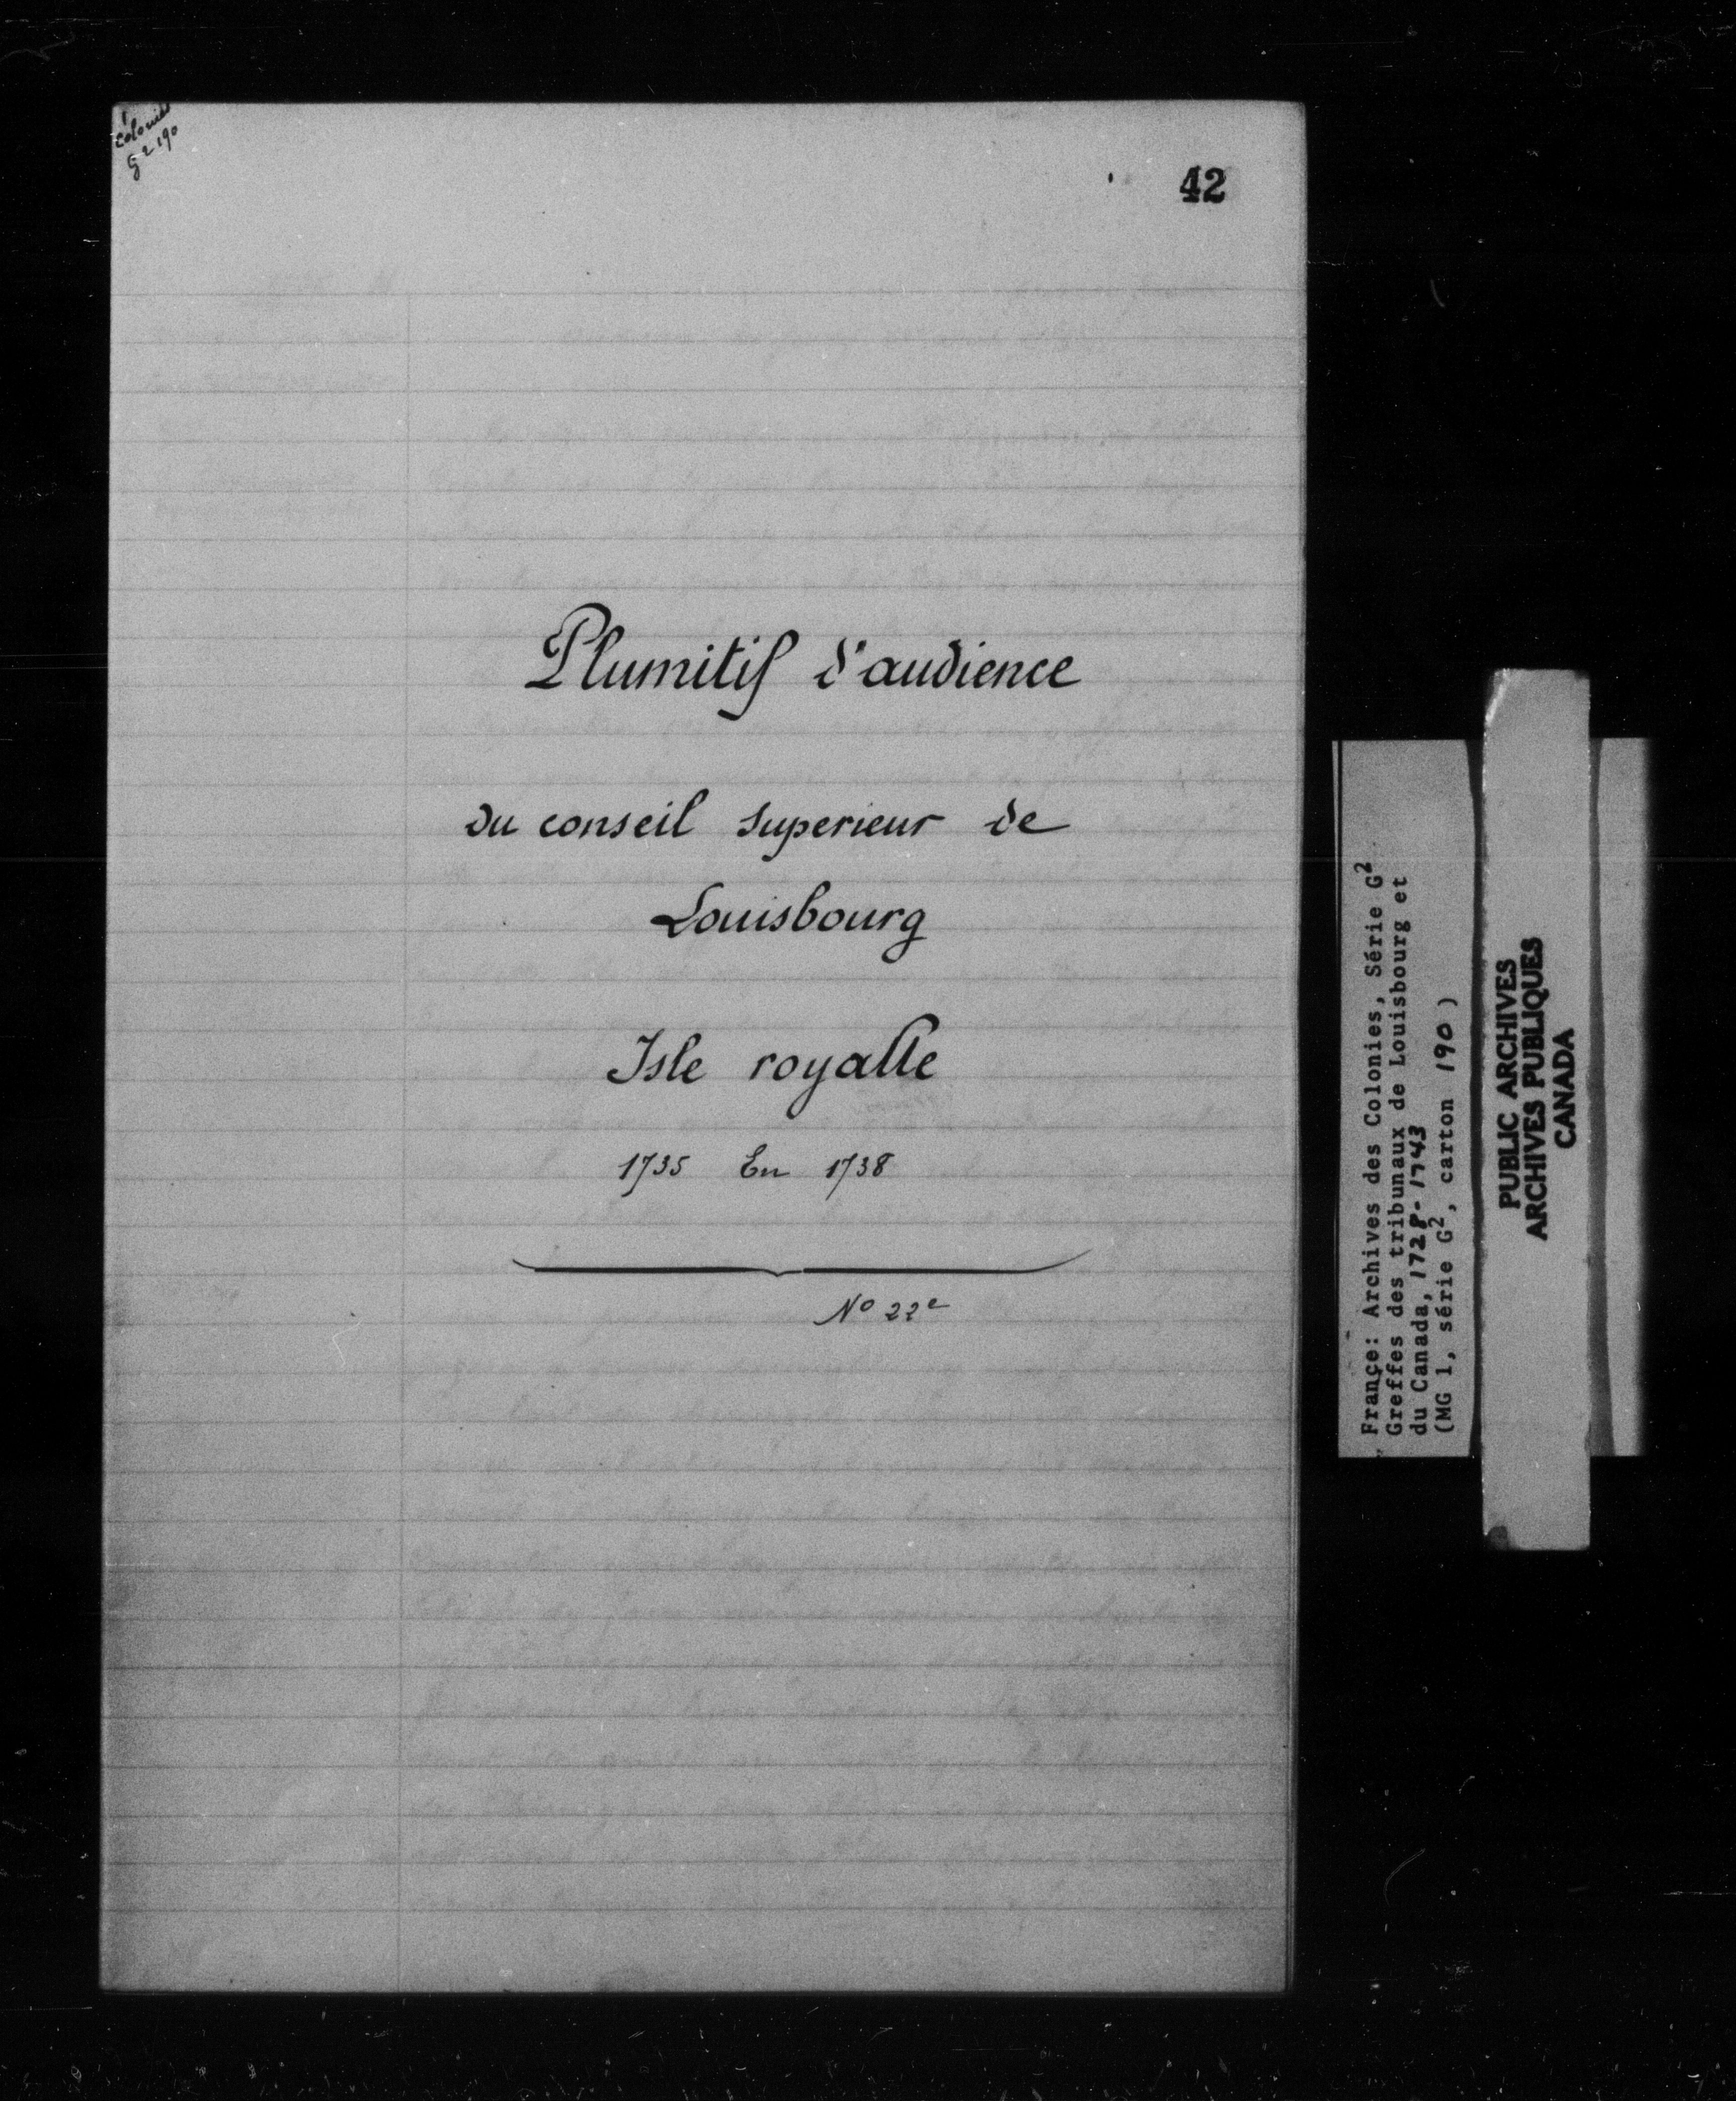 Colonies
G 2 190
42
Plumitif d'audience
du conseil superieur de
Louisbourg
Isle royalle
1735 En 1738
No 22e
France: Archives des Colonies, Série G2
Greffes des tribunaux de Louisbourg et
du Canada, 1728-1743
(MG 1, série G2, carton 190)
PUBLIC ARCHIVES
ARCHIVES PUBLIQUES
CANADA